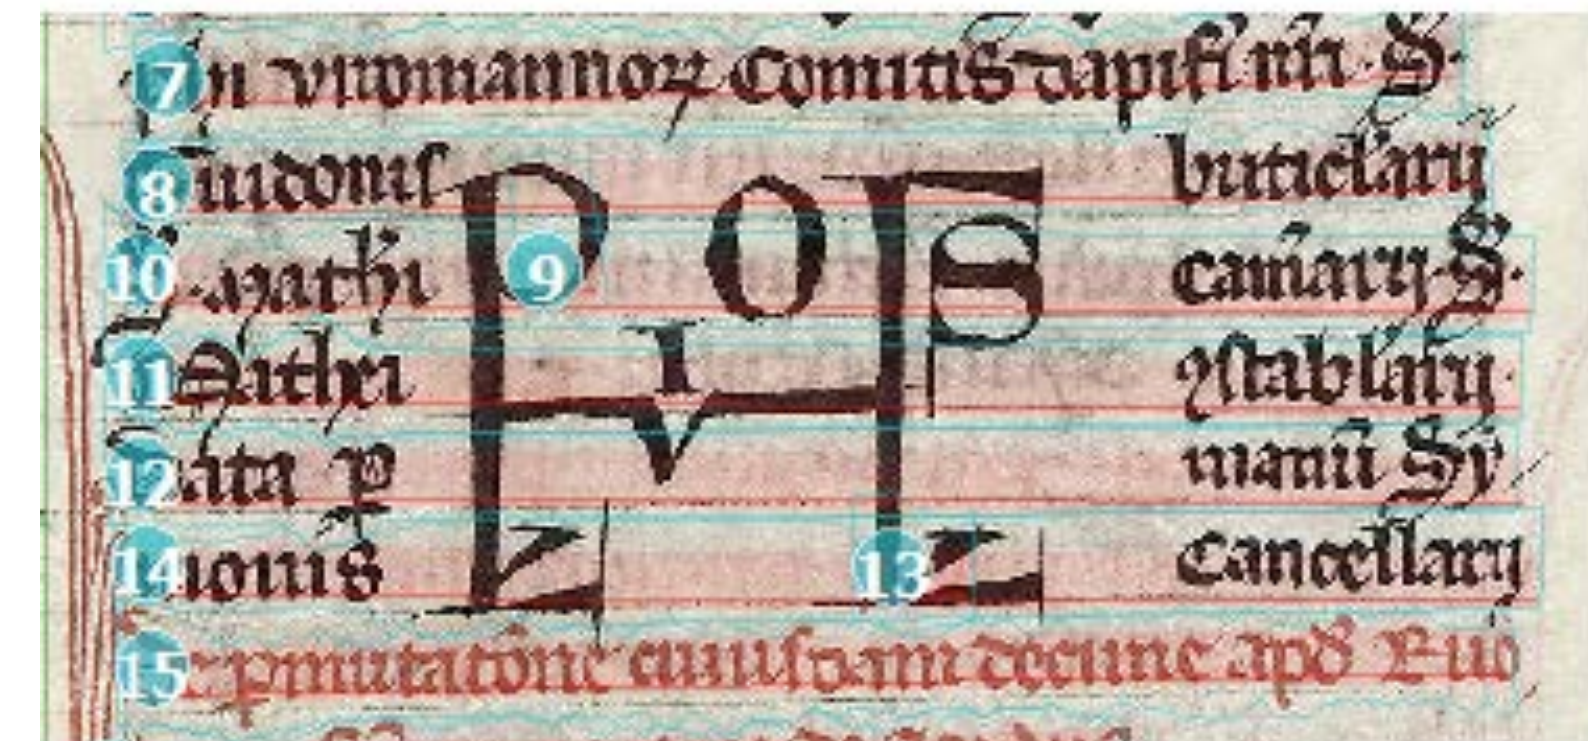 viromannoꝝ Comitis dapifi nri · S ·
Guidonis buticlarij
S · Mathi camarij · S ·
Mathei ꝯstablarij ·
Data ꝑ manu Sy
monis Cancellarij
De ꝑmutatone cuiusdam decime apd Ruo